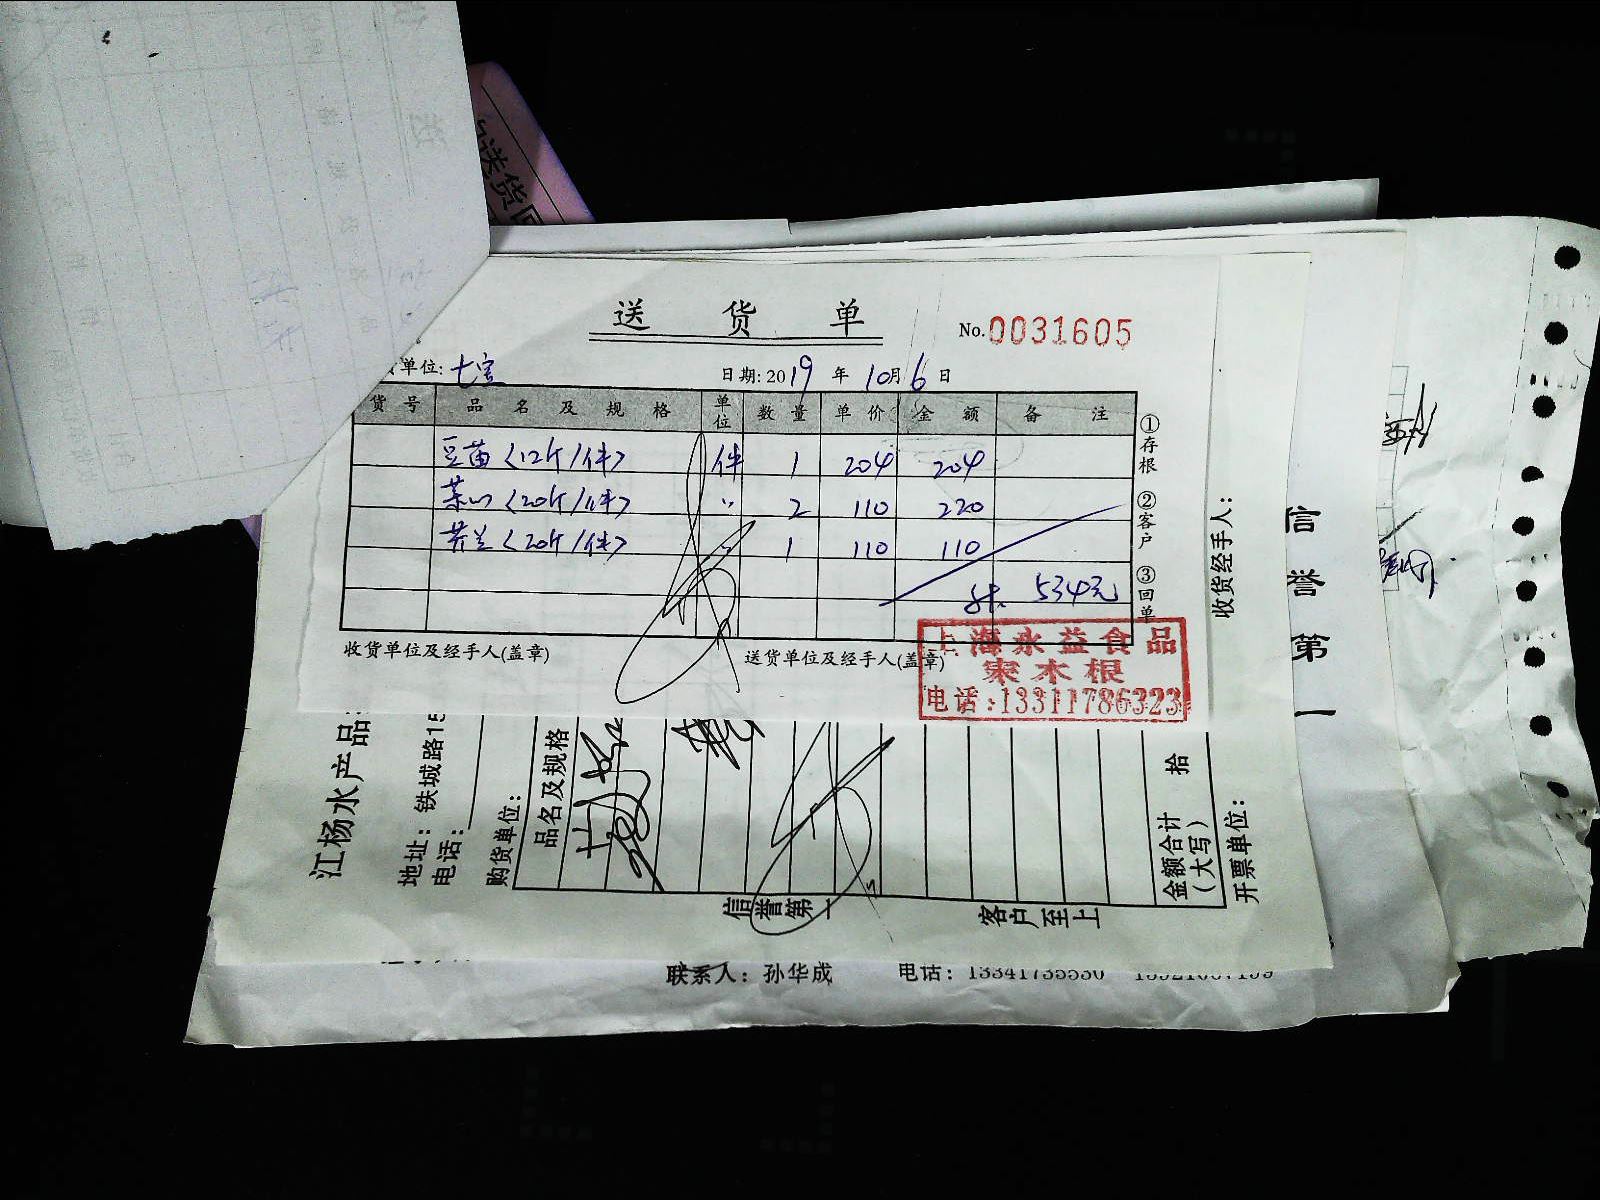 送货
送 货 单
No.0031605
单位: 七宝
日期: 2019 年 10月 6 日
货 号 品 名 及 规 格 单位 数 量 单 价 金 额 备 注
豆苗<12斤/件> 件 1 204 204
菜心<20斤/件> 〃 2 110 220
芥兰<20斤/件> 〃 1 110 110
计 534元
①存根 ②客户 ③回单
收货单位及经手人(盖章)
送货单位及经手人(盖章)
上海永益食品
电话:13311786323
收货经手人:
信誉第一
江杨水产品
地址: 铁城路15
电话:
购货单位:
品名及规格
拾
金额合计
(大写)
开票单位:
信誉第一
客户至上
联系人: 孙华成 电话: 13341735530